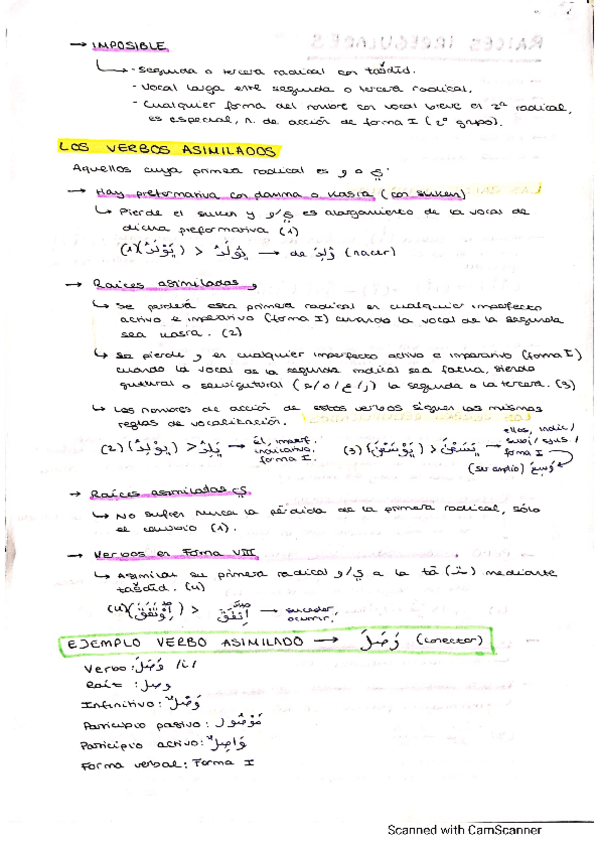 → IMPOSIBLE
↳ - Segunda o tercera radical con tašdīd.
- Vocal larga entre segunda o tercera radical.
- Cualquier forma del nombre con vocal breve en 2ª radical,
es especial, n. de acción de forma I (2º grupo).
LOS VERBOS ASIMILADOS
Aquellos cuya primera radical es و o ي.
→ Hay preformativa con damma o kasra (con sukun)
↳ Pierde el sukun y و/ي es alargamiento de la vocal de
dicha preformativa (1)
(1) (يُوْلَدُ) > يُولَدُ → de وُلِدَ (nacer)
→ Raíces asimiladas و
↳ Se perderá esta primera radical en cualquier imperfecto
activo e imperativo (forma I) cuando la vocal de la segunda
sea kasra. (2)
↳ Se pierde و en cualquier imperfecto activo e imperativo (forma I)
cuando la vocal de la segunda radical sea fatha, siendo
gutural o semigutural la segunda o la tercera. (3)
↳ Los nombres de acción de estos verbos siguen las mismas
reglas de vocalización.
(2) (يَوْلِدُ) > يَلِدُ → él, imperf. indicativo, forma I.
(3) (يَوْسَعْنَ) > يَسَعْنَ → ellas, indic/ subj/ yus. / forma I
(ser amplio) وَسِعَ
→ Raíces asimiladas ي
↳ No sufren nunca la pérdida de la primera radical, sólo
el cambio (1).
→ Verbos en Forma VIII
↳ Asimilan su primera radical و/ي a la tā (ت) mediante
tašdīd. (4)
(4) (اِوْتَفَقَ) > اِتَّفَقَ → suceder, ocurrir.
EJEMPLO VERBO ASIMILADO → وَصَلَ (conectar)
Verbo: وَصَلَ /i/
Raíz: وصل
Infinitivo: وَصْلٌ
Participio pasivo: مَوْصُول
Participio activo: وَاصِلٌ
Forma verbal: Forma I
Scanned with CamScanner